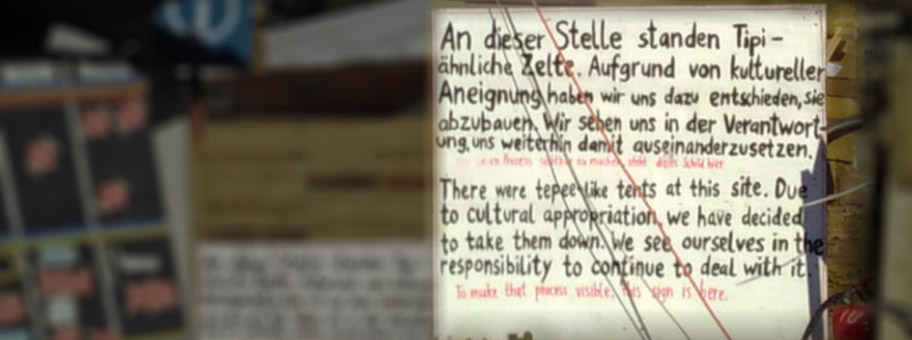 An dieser Stelle standen Tipi-
ähnliche Zelte. Aufgrund von kultureller
Aneignung haben wir uns dazu entschieden, sie
abzubauen. Wir sehen uns in der Verantwort-
ung, uns weiterhin damit auseinanderzusetzen.
Prozess sichtbar zu machen, steht dieses Schild hier.
There were tepee-like tents at this site. Due
to cultural appropriation we have decided
to take them down. We see ourselves in the
responsibility to continue to deal with it.
To make that process visible, this sign is here.